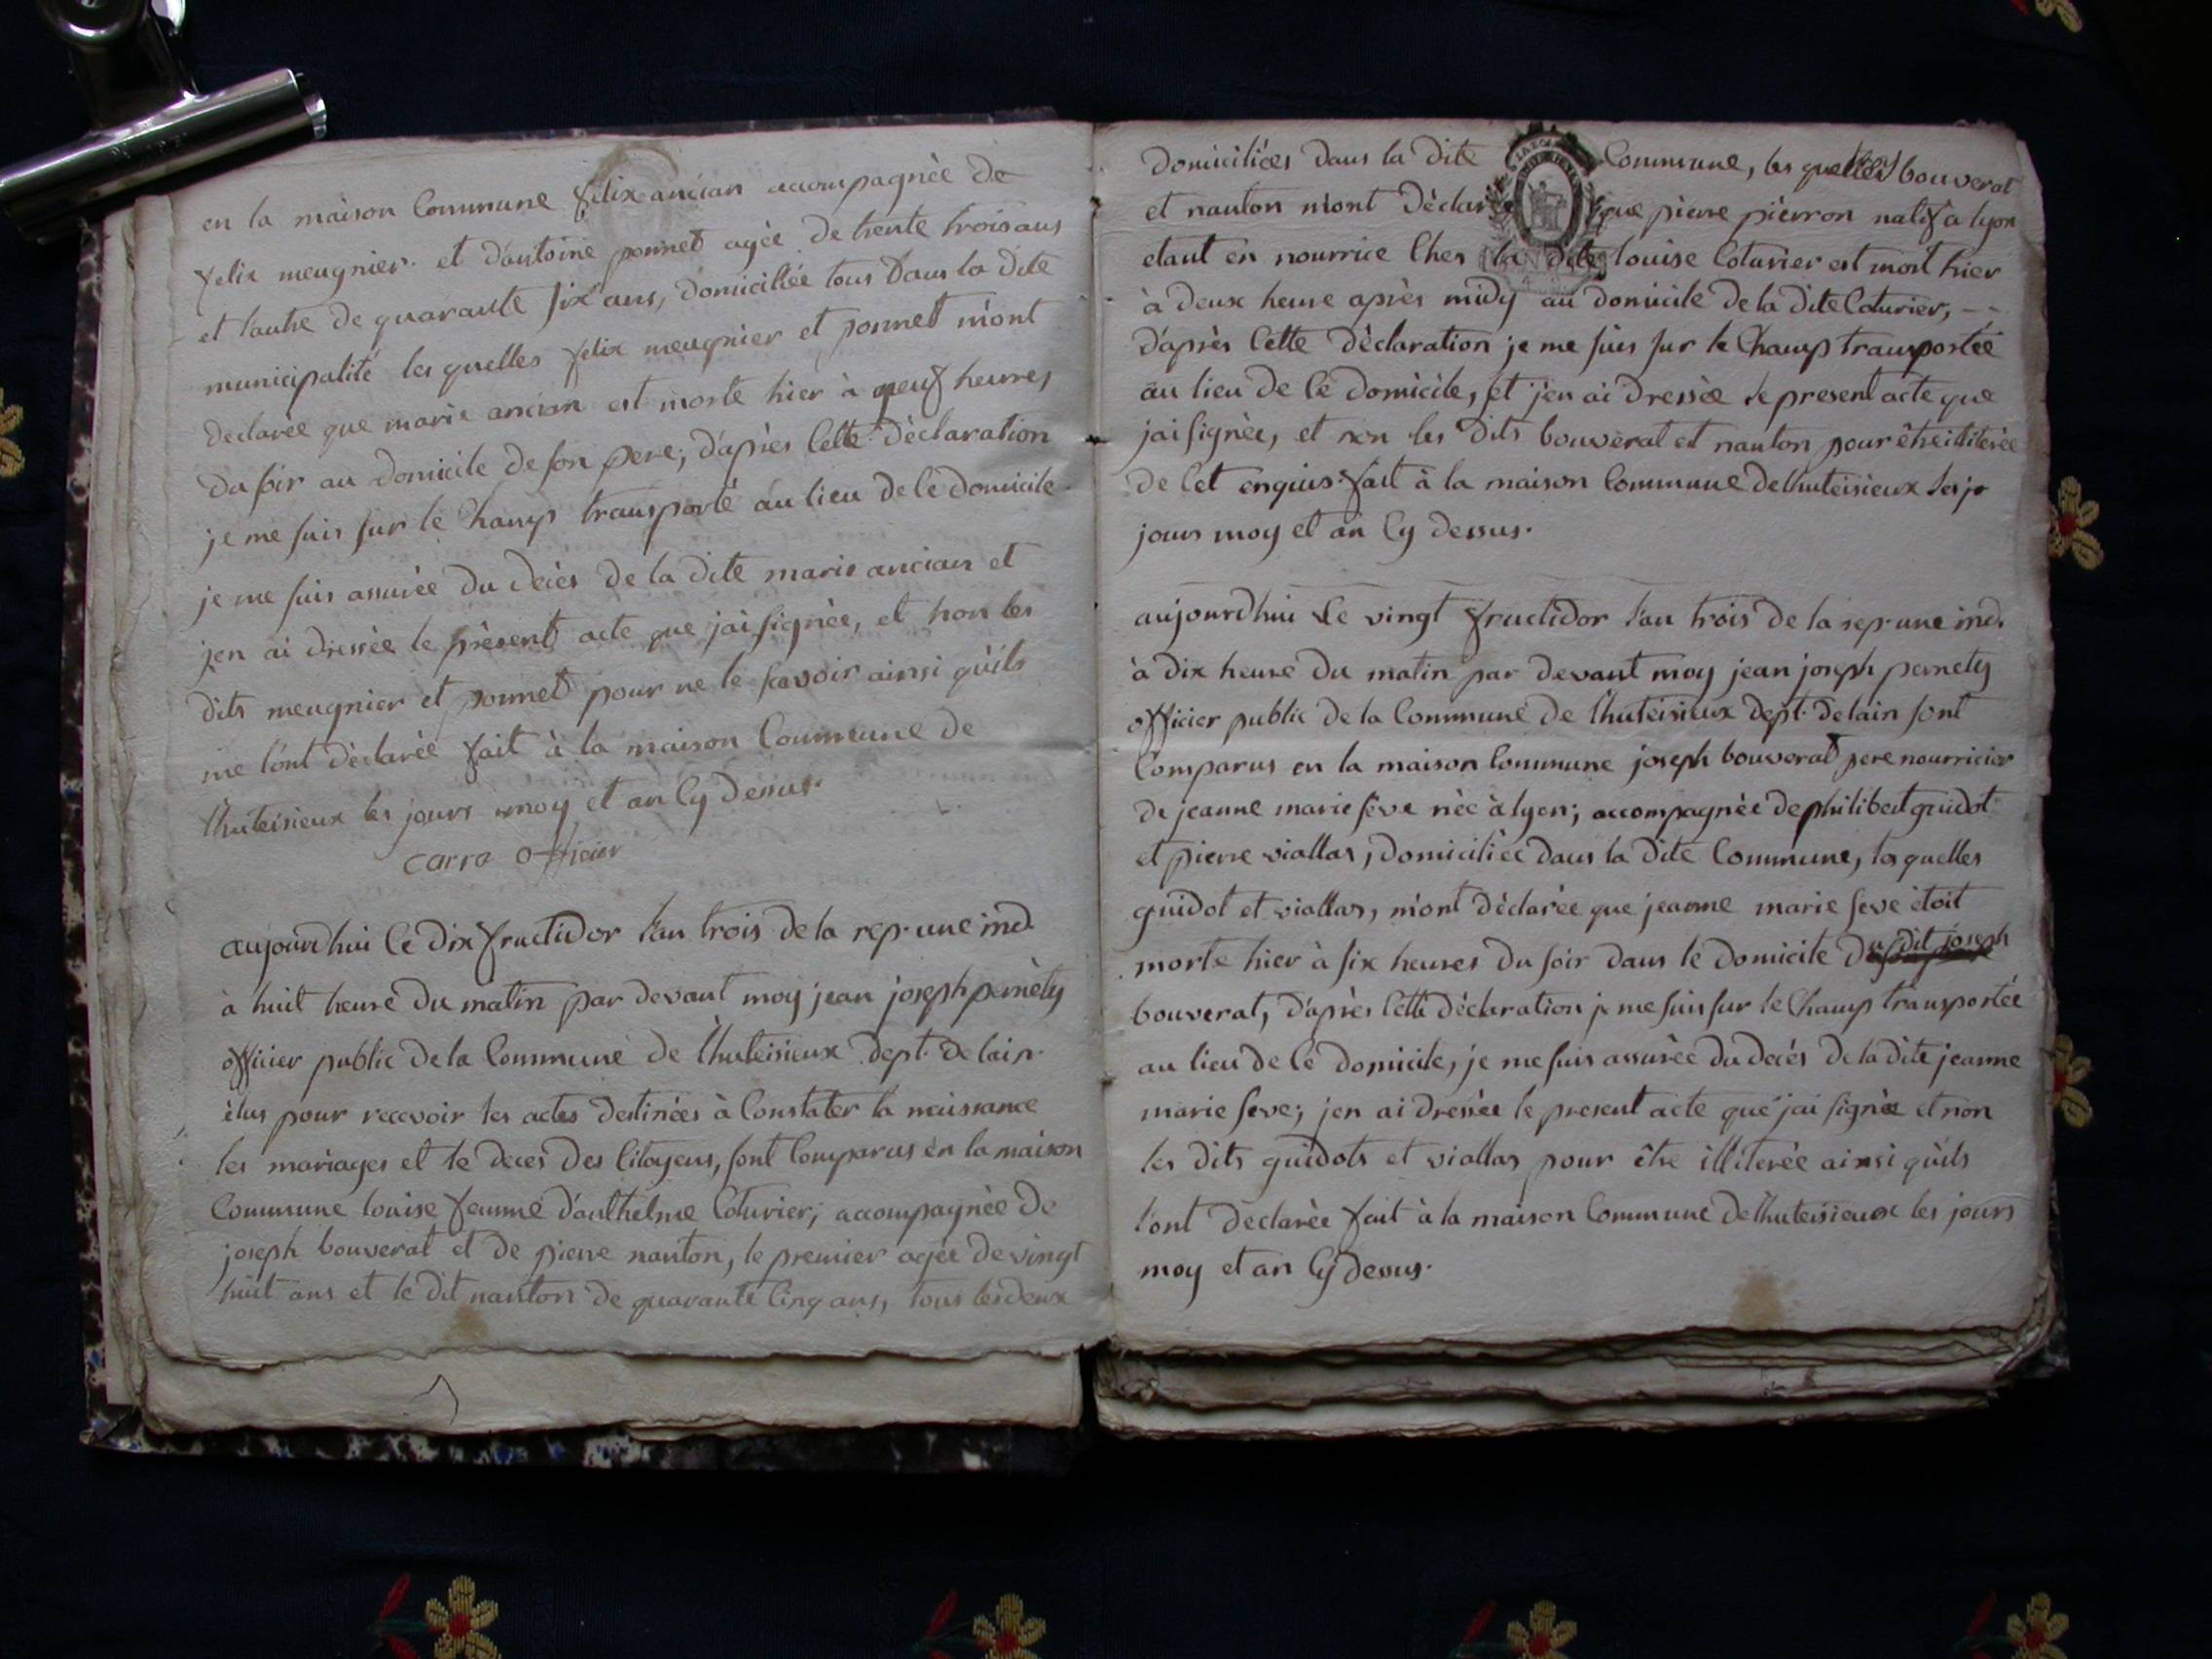 en la maison Commune felix ancian accompagnèe de
felix meugnier. et d'antoine ponnet agèe de trente trois ans
et l'autre de quarante six ans, domiciliée tous dans la dite
municipalité les quelles felix meugnier et ponnet m'ont
declarèe que marie ancian est morte hier à neuf heures
du soir au domicile de son pere; d'après cette dèclaration
je me suis sur le champ transporté au lieu de ce domicile
je me suis assurèe du decès de la dite marie ancian et
jen ai dressèe le prèsent acte que jai signèe, et non les
dits meugnier et ponnet pour ne le scavoir ainsi qu'ils
me l'ont dèclarèe fait à la maison Commune de
Chuteisieux les jours moy et an Cy dessus.
carra officier
aujourd'hui le dix fructidor l'an trois de la rep. une ind.
à huit heure du matin par devant moy jean joseph pernèty
officier public de la Commune de Chuteisieux dept. de lain
èlus pour recevoir les actes destinèes à Constater la naissance
les mariages et le deces des Citoyens, sont Comparus en la maison
Commune louise femme d'anthelme Coturier, accompagnèe de
joseph bouverat et de pierre nanton, le premier agèe de vingt
huit ans et le dit nanton de quarante Cinq ans, tous les deux
domicilièes dans la dite Commune, les quelles bouverat
et nanton m'ont dèclar que pierre pierron natif a lyon
etant en nourrice Ches la dite louise Coturier est mort hier
à deux heure après midy au domicile de la dite Coturier, --
d'après Cette dèclaration je me suis sur le Champ transportèe
au lieu de Ce domicile, et j'en ai dressèe le present acte que
jai signèe, et non les dits bouverat et nanton pour être illiterèe
de Cet enquis. fait à la maison Commune de Chuteisieux les jo
jours moy et an Cy dessus.
aujourdhui le vingt fructidor l'an trois de la rep. une ind.
à dix heure du matin par devant moy jean joseph pernety
officier public de la Commune de Chuteisieux dept. de lain sont
Comparus en la maison Commune joseph bouverat pere nourricier
de jeanne marie sève nèe à lyon; accompagnèe de philibert guidot
et pierre viallas, domicilièe dans la dite Commune, les quelles
guidot et viallas, m'ont dèclarèe que jeanne marie seve ètoit
morte hier à six heures du soir dans le domicile du dit joseph
bouverat, d'après Cette dèclaration je me suis sur le Champ transportèe
au lieu de Ce domicile, je me suis assurèe du decès de la dite jeanne
marie seve; jen ai dressèe le present acte que jai signèe et non
les dits guidots et viallas pour être illiterèe ainsi qu'ils
l'ont declarèe fait à la maison Commune de Chuteisieux les jours
moy et an Cy dessus.